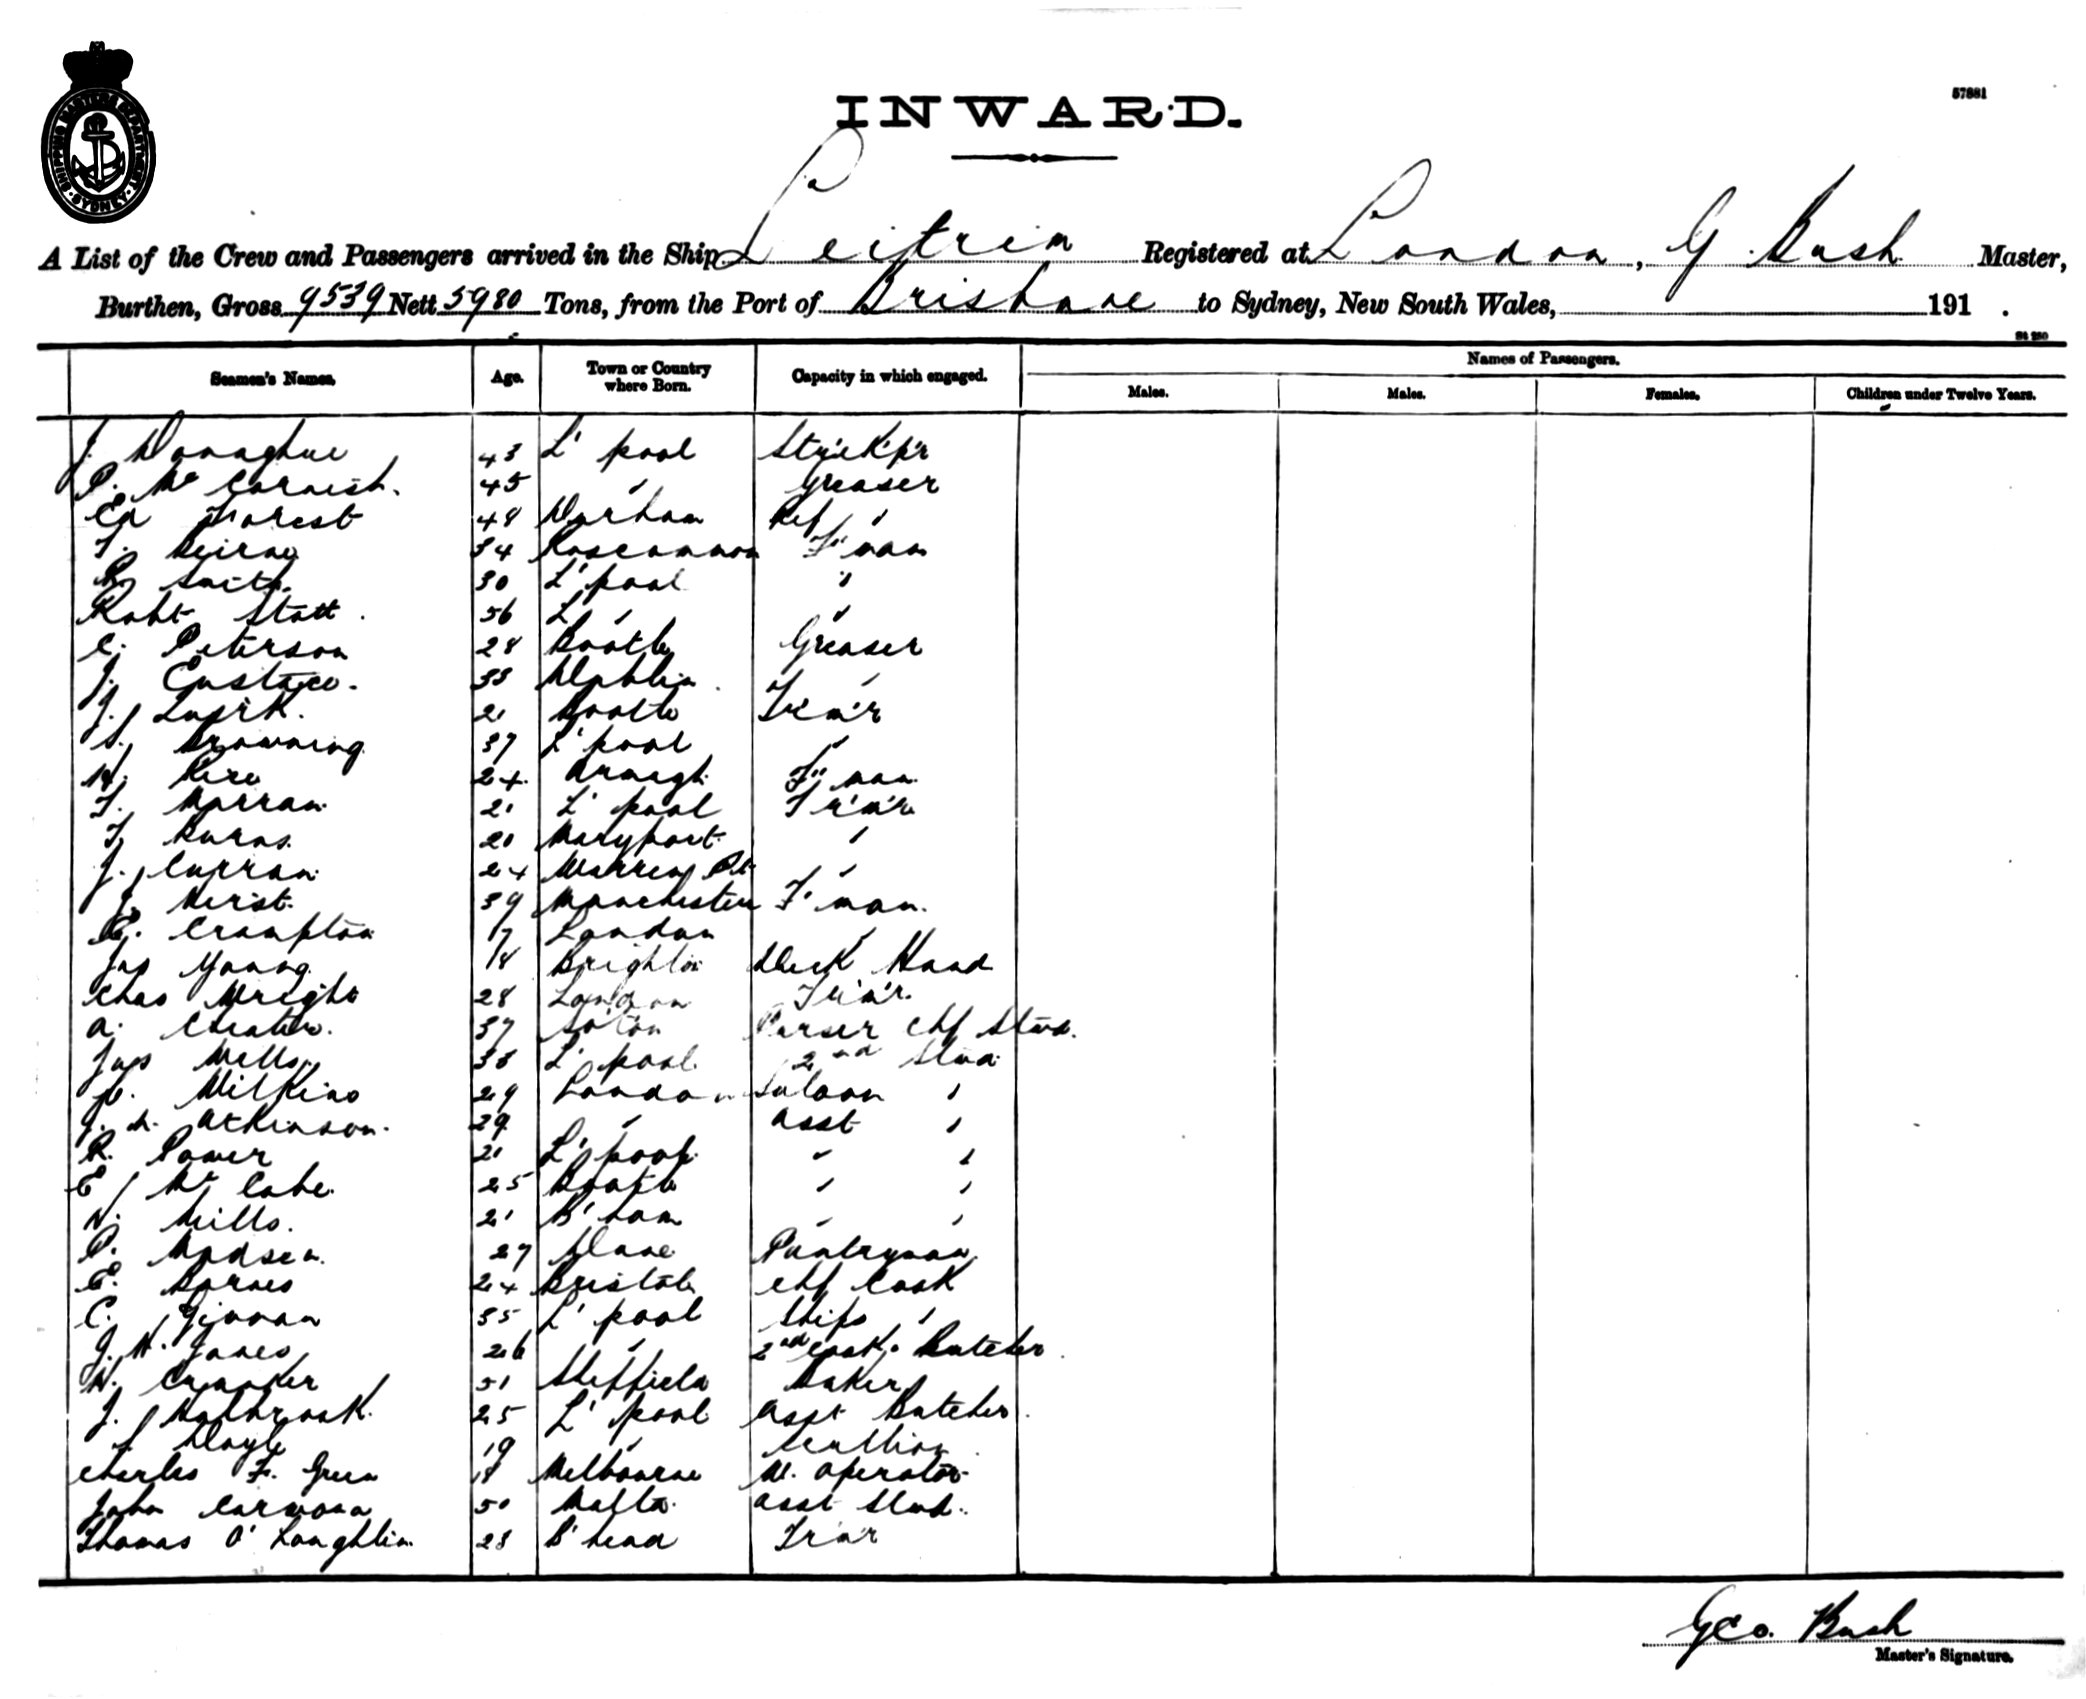 SHIPPING MASTERS DEPARTMENT SYDNEY
INWARD.
57881
A List of the Crew and Passengers arrived in the Ship Leitrim Registered at London, G. Bush Master,
Burthen, Gross 9539 Nett 5980 Tons, from the Port of Brisbane to Sydney, New South Wales, 191 .
St 250
Seamen's Names. Age. Town or Country where Born. Capacity in which engaged. Names of Passengers.
Males. Males. Females. Children under Twelve Years.
J. Donaghue 43 L'pool St'reK'p'r
P. Mc Cornish. 45 " Greaser
Ed Forest 48 Durham Ref "
T. Beirne 34 Roscommon F'man
R. Smith. 30 L'pool "
Robt Stott. 56 L " "
C. Peterson 28 Bootle Greaser
J. Eustace. 33 Dublin. "
J. 21 Bootle Tr'm'r
S. Browning 37 L'pool "
24 Armagh F'man
T. 21 L'pool Tr'm'r
T. Burns. 20 Maryport "
J. Curran 24 Warren Pt "
J. 39 Manchester F'man.
Crompton 17 London "
Jas Young 18 Brighton Deck Hand
Chas Wright 28 London Tr'm'r.
A. 37 So'ton Purser Chf Stwd.
Jas 38 L'pool 2nd Stwd
Wilkins 29 London Saloon "
J. H. Atkinson. 29 " Asst "
R. Power 21 L'pool " "
E Mc Cabe. 25 Bootle " "
W. Mills. 21 B'ham " "
P. Madsen. 27 Dane Pantryman
E. Barnes 24 Bristol Chf Cook
C. 35 L'pool Ships "
J. H. Jones 26 " 2nd Cook & Butcher.
W. Crooker 51 Sheffield Baker
J. Holbrook. 25 L'pool Asst Butcher.
Doyle 19 " Scullion.
Charles F. Green 18 Melbourne W. Operator
John 50 Malta. Asst Stwd.
Thomas O'Loughlin. 28 B'head Tr'm'r
Geo. Bush
Master's Signature.